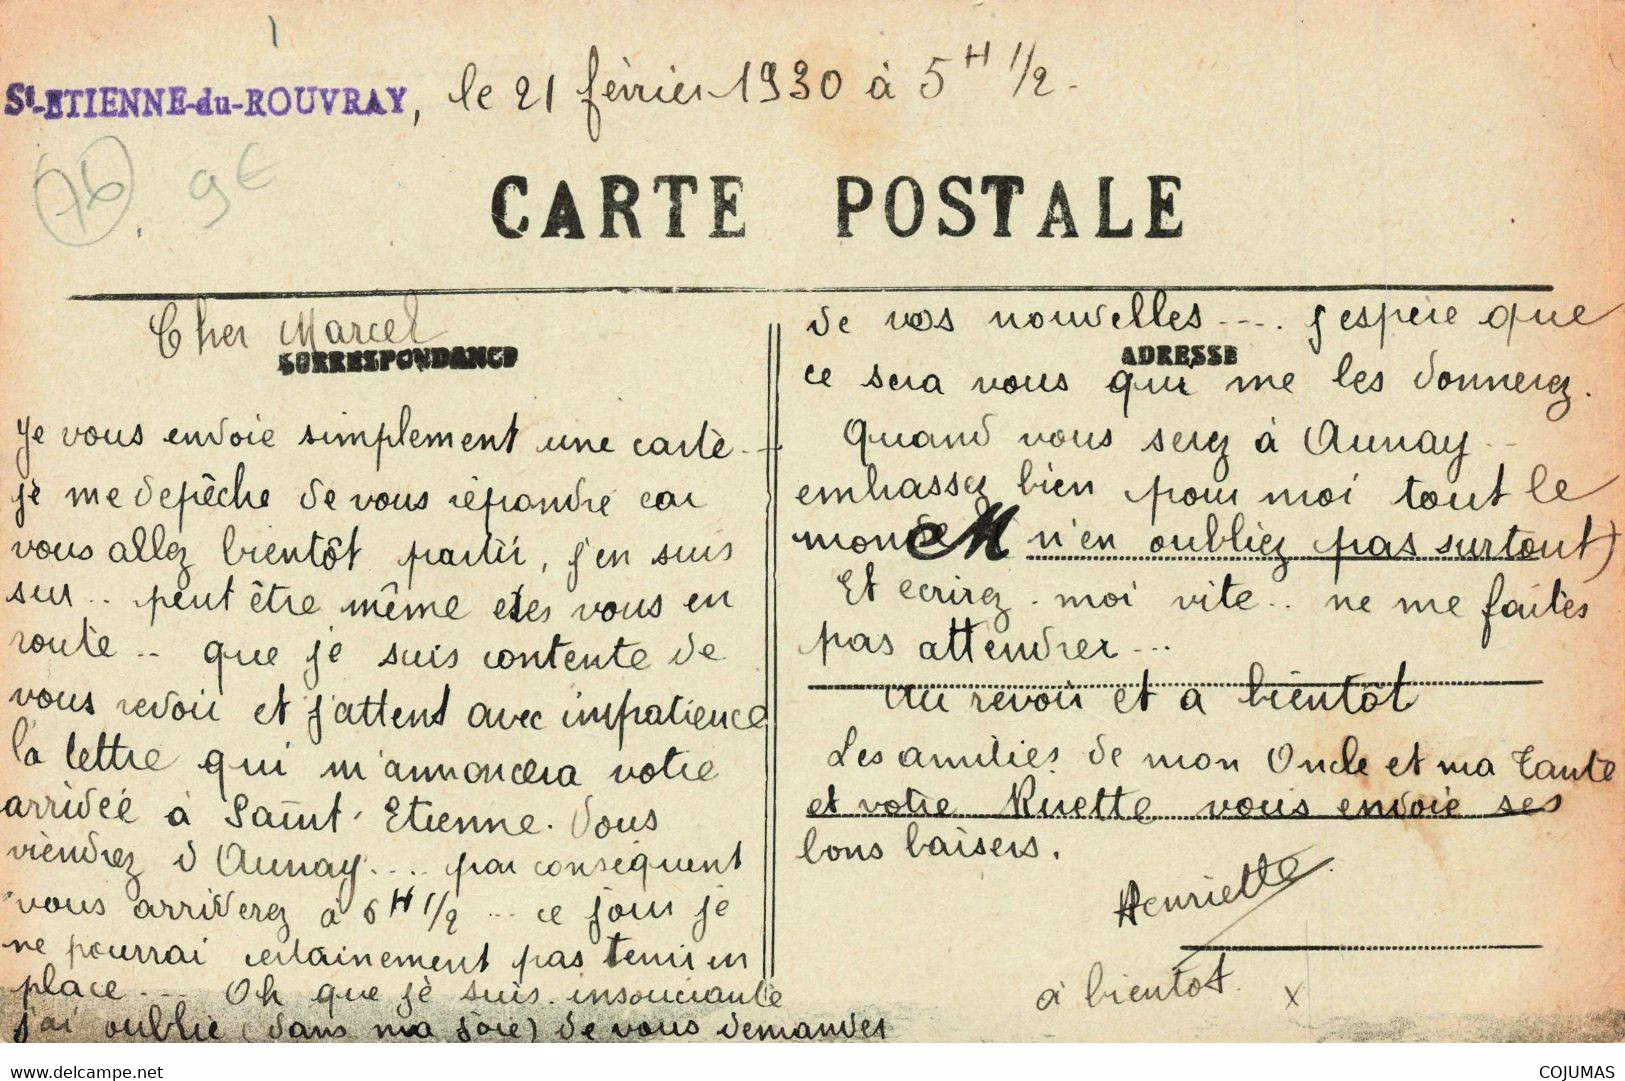 St-ETIENNE-du-ROUVRAY, le 21 février 1930 à 5 H 1/2.
76. 9€
CARTE POSTALE
Cher Marcel
CORRESPONDANCE
Je vous envoie simplement une carte..
je me depêche de vous répondre car
vous allez bientôt partir, j'en suis
sur.. peut être même etes vous en
route.. que je suis contente de
vous revoir et j'attend avec impatience
la lettre qui m'annoncera votre
arrivée à Saint-Etienne. Vous
viendrez d'Aunay.... par conséquent
vous arriverez à 6 H 1/2 ... ce jour je
ne pourrai certainement pas tenir en
place... Oh que je suis insouciante
j'ai oublié (dans ma joie) de vous demander
de vos nouvelles.... j'espère que
ADRESSE
ce sera vous qui me les donnerez.
Quand vous serez à Aunay..
embassez bien pour moi tout le
monde M n'en oubliez pas surtout)
Et ecrirez-moi vite.. ne me faites
pas attendrer...
Au revoir et a bientôt
Les amitiés de mon Oncle et ma Tante
et votre Riette vous envoie ses
bons baisers.
Henriette
à bientot. x
delcampe.net
COJUMAS